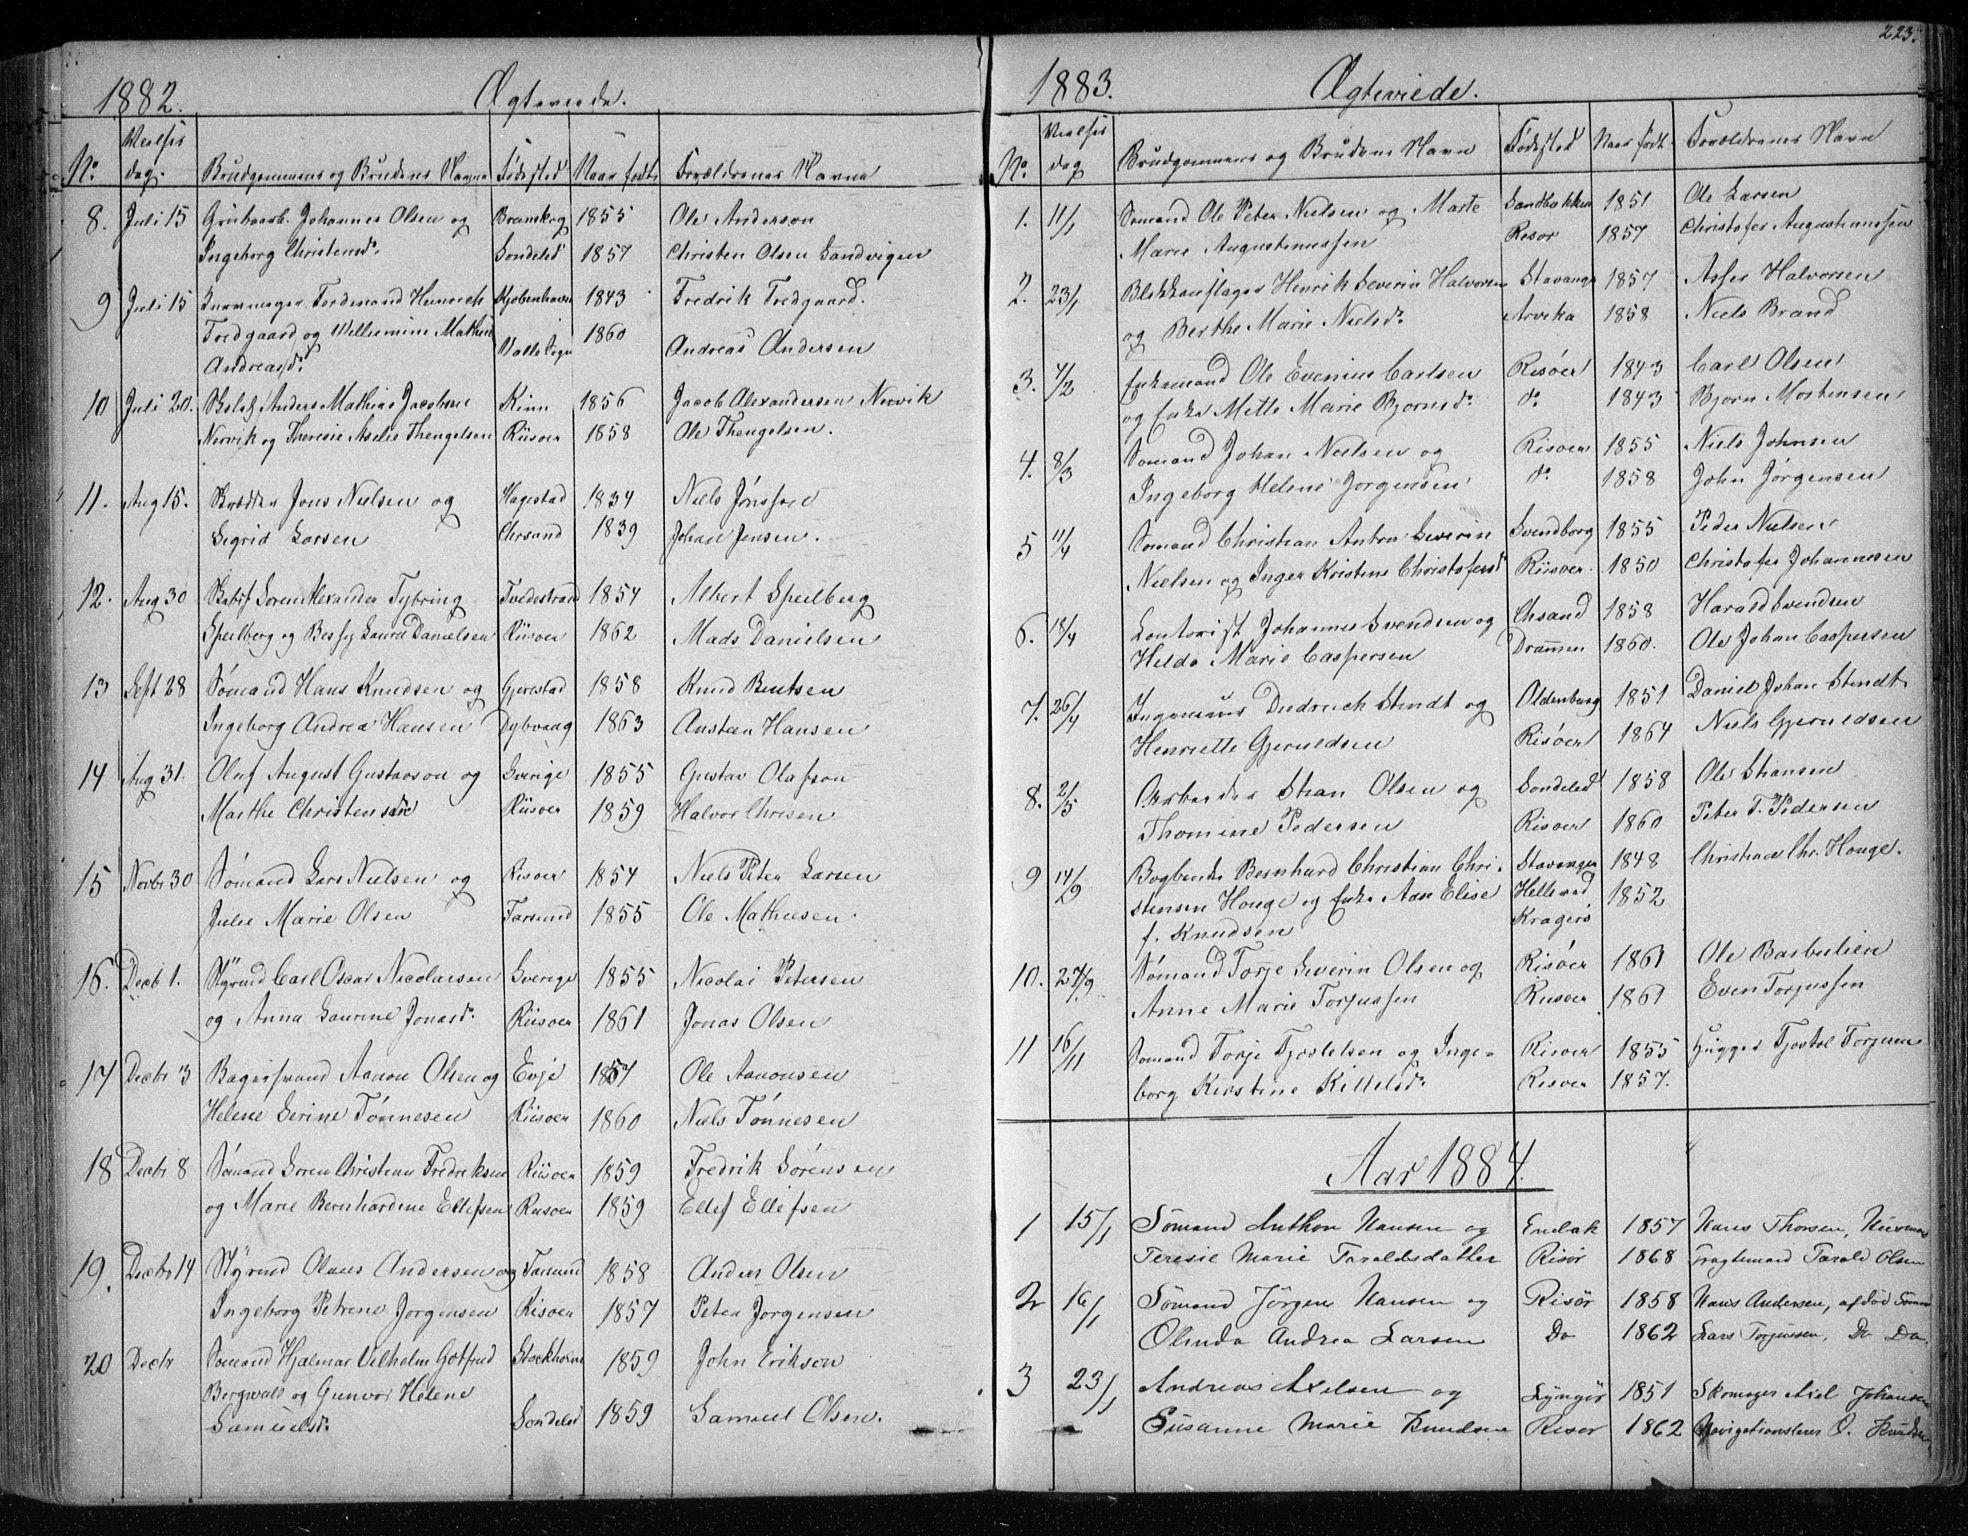 1882. Ægteviede.
No. Vielses dag. Brudgommens og Brudens Navne Fødested Naar født Forældrenes Navne
8. Juli 15 Johannes Olsen og 1855 Ole Anderson
Ingeborg Christensdr. Sondeled 1857 Christen Olsen Sandvigen
9 Juli 15 Ferdinand Heinrich Kjøbenhavn 1843 Fredrik Fredgaard.
Fredgaard og Williemine Mathea Valle Sogn 1860
Andreasdr. Andreas Andersen
10 Juli 20. Anders Mathias Jacobsen Kinn 1856 Jacob Alexandersen Nervik
Nervik og Theresie Aselie Thengelsen Riisøer 1858 Ole Thengelsen.
11. Aug 15. Jons Nielsen og Hagestad 1834 Niels
Sigrid Larsen Chrsand 1839 Johan Jensen.
12. Aug 30 Soren Alexander Tybring Tvedestrand 1854 Albert Speilberg
Speilberg og Laura Danielsen Riisøer 1862 Mads Danielsen
13 Sept 28 Sømand Hans Knudsen og Gjerestad 1858 Knud Bentsen
Ingeborg Andrea Hansen Dybvaag 1863 Austeen Hansen
14 Aug 31. Oluf August Gustavson og Sverige 1855 Gustav Olafson
Marthe Christensdr Riisøer 1859 Halvor Chrisen
15 Novbr 30 Sømand Lars Nielsen og Risøer 1854 Niels Peter Larsen
Julie Marie Olsen Farsund 1855 Ole Mathiesen
16. Decb 1. Styrmd Carl Oscar Nicolaisen Sverige 1855 Nicolai Petersen
og Anna Laurine Jonasdr. Riisøer 1861 Jonas Olsen
17 Decbr 3 Bagersvend Aanon Olsen og Evje 1857 Ole Aanonsen
Helene Serine Tønnesen Riisøer 1860 Niels Tønnesen
18 Decbr 8 Sømand Soren Christian Fredriksen Riisøer 1859 Fredrik Sörensen
og Marie Bernhardine Ellefsen Riisøer 1859 Ellef Ellefsen
19. Decbr 14 Styrmd Olaus Andersen og Farsund 1858 Anders Olsen
Ingeborg Petrene Jorgensen Risøer 1857 Peter Jorgensen
20 Decbr Sømand Hjalmar Vilhelm Gotfred Stockholm 1859 John Erikson
Bergwall og Gunvor Helene
Samuelsdr. Sondeled 1859 Samuel Olsen.
223.
1883. Ægteviede.
No. Vielses dag Brudgommens og Brudens Navn Fødested Naar født. Forældrenes Navn
1. 11/1 Sømand Ole Peter Nielsen og Marte Sandbakken 1851 Ole Larsen
Marie Augustinussen Risør 1857 Christofer Augustinussen
2. 23/1 Henrik Severin Halvorsen Stavanger 1857 Halvorsen
og Berthe Marie Nielsdr. Arvika 1858 Niels Brand
3. /2 Enkemand Ole Evenius Carlsen Risøer 1843 Carl Olsen
og Enke Mette Marie Bjornsdr. do. 1843 Bjorn Mortensen
4. 8/3 Sømand Johan Nielsen og Risøer 1855 Niels Johnsen
Ingeborg Helene Jorgensen do. 1858 John Jørgensen
5 11/4 Sømand Christian Anton Severin Svendborg 1855 Peder Nielsen
Nielsen og Inger Kristine Christofersdr Riisøer. 1850 Christofer Johannesen
6. 18/4 Contorist Johannes Svendsen og Chsand 1858 Harald Svendsen
Hilda Marie Caspersen Drammen 1860. Ole Johan Caspersen
7. 26/4 Diedrich Stindt og Oldenburg 1851 Daniel Johan Stindt
Henriette Gjeruldsen Risøer 1864 Niels Gjeruldsen
8. 2/5 Arbeider Olsen og Sondeled 1858 Ole
Thomine Pedersen Risøer 1860 Peter T. Pedersen
9 14/9 Bogbinder Bernhard Christian Chri- Stavanger 1848 Christian Chr. Houge.
stensen Houge og Enke Aase Elise Hellesund 1852
f. Knudsen Kragerö
10. 27/9 Sømand Torje Severin Olsen og Risøer 1861 Ole
Anne Marie Torjussen Risøer 1861 Even Torjussen
11 16/11 Sømand Torje Tjostelsen og Inge- Risøer 1855 Tjostel Torjusen
borg Kirstine Kittelsdr. Risøer 1857.
Aar 1884.
1 15/1 Sömand Anthon Hansen og 1857 Hans Thorsen,
Teresie Marie Taraldsdatter Risör 1868 Fragtemand Tarald Olsen
2 16/1 Sömand Jörgen Hansen og Risör 1858 Hans Andersen, afdöd Sömand
Olinda Andrea Larsen Do 1862 Lars Torjussen, Do Do.
3 23/1 Andreas Axelsen og Lyngör 1851 Skomager Axel Johansen
Susanne Marie Knudsen Risør 1862 Navigationslærer O. Knudsen